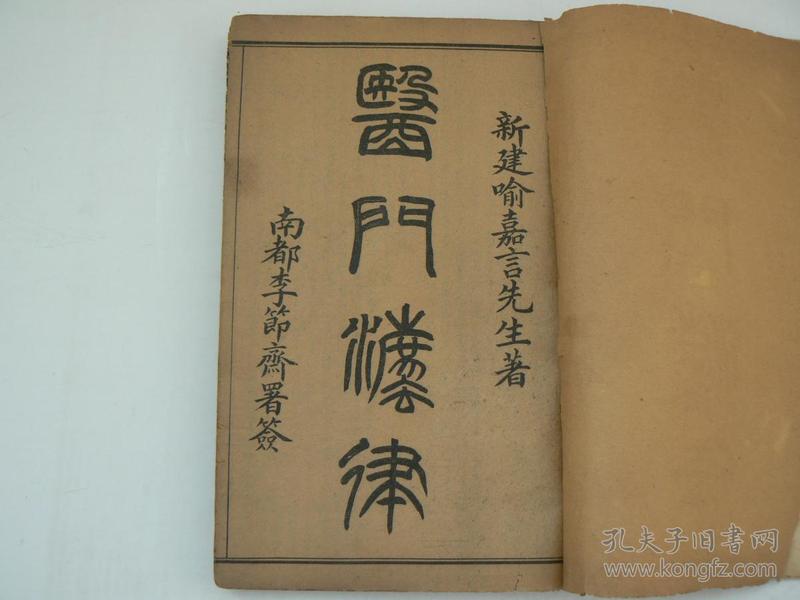 新建喻嘉言先生著
醫門灋律
南都李節齋署簽
孔夫子旧书网
www.kongfz.com